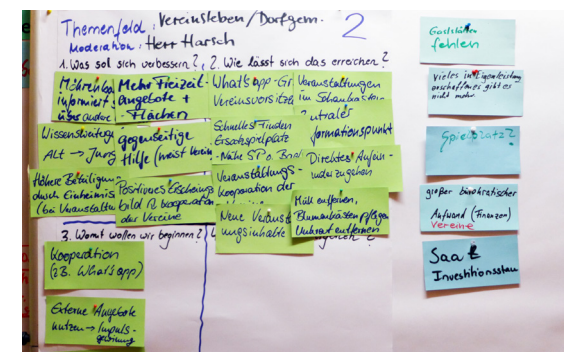 Themenfeld: Vereinsleben/Dorfgem.
2
Moderation: Herr Harsch
1. Was soll sich verbessern?, 2. Wie lässt sich das erreichen?
informiert
über andere
Mehr Freizeit-
angebote +
- Flächen
What's app - Gr
Vereinsvorsitze
Veranstaltungen
im Schaukasten
Alt → Jung
gegenseitige
Hilfe (meist Verein
Schnelles Finden
Ersatzspielplatz
zentraler
formationspunkt
Höhere Beteiligun-
durch Einheimis
(bei Veranstaltu
bild
der Vereine
Veranstaltungs-
kooperation der
Direktes Aufein-
anderzugehen
Neue Veranst
ungsinhalte
Müll entfernen,
Blumenkästen pflegen
Unkraut entfernen
3. Womit wollen wir beginnen?
Kooperation
(z.B. What's app)
Externe Angebote
nutzen → Impuls-
gewinnung
Gaststätten
fehlen
Vieles in Eigenleistung
erschaffenes gibt es
nicht mehr
Spielplatz?
großer bürokratischer
Aufwand (Finanzen)
Vereine
Saal
Investitionsstau